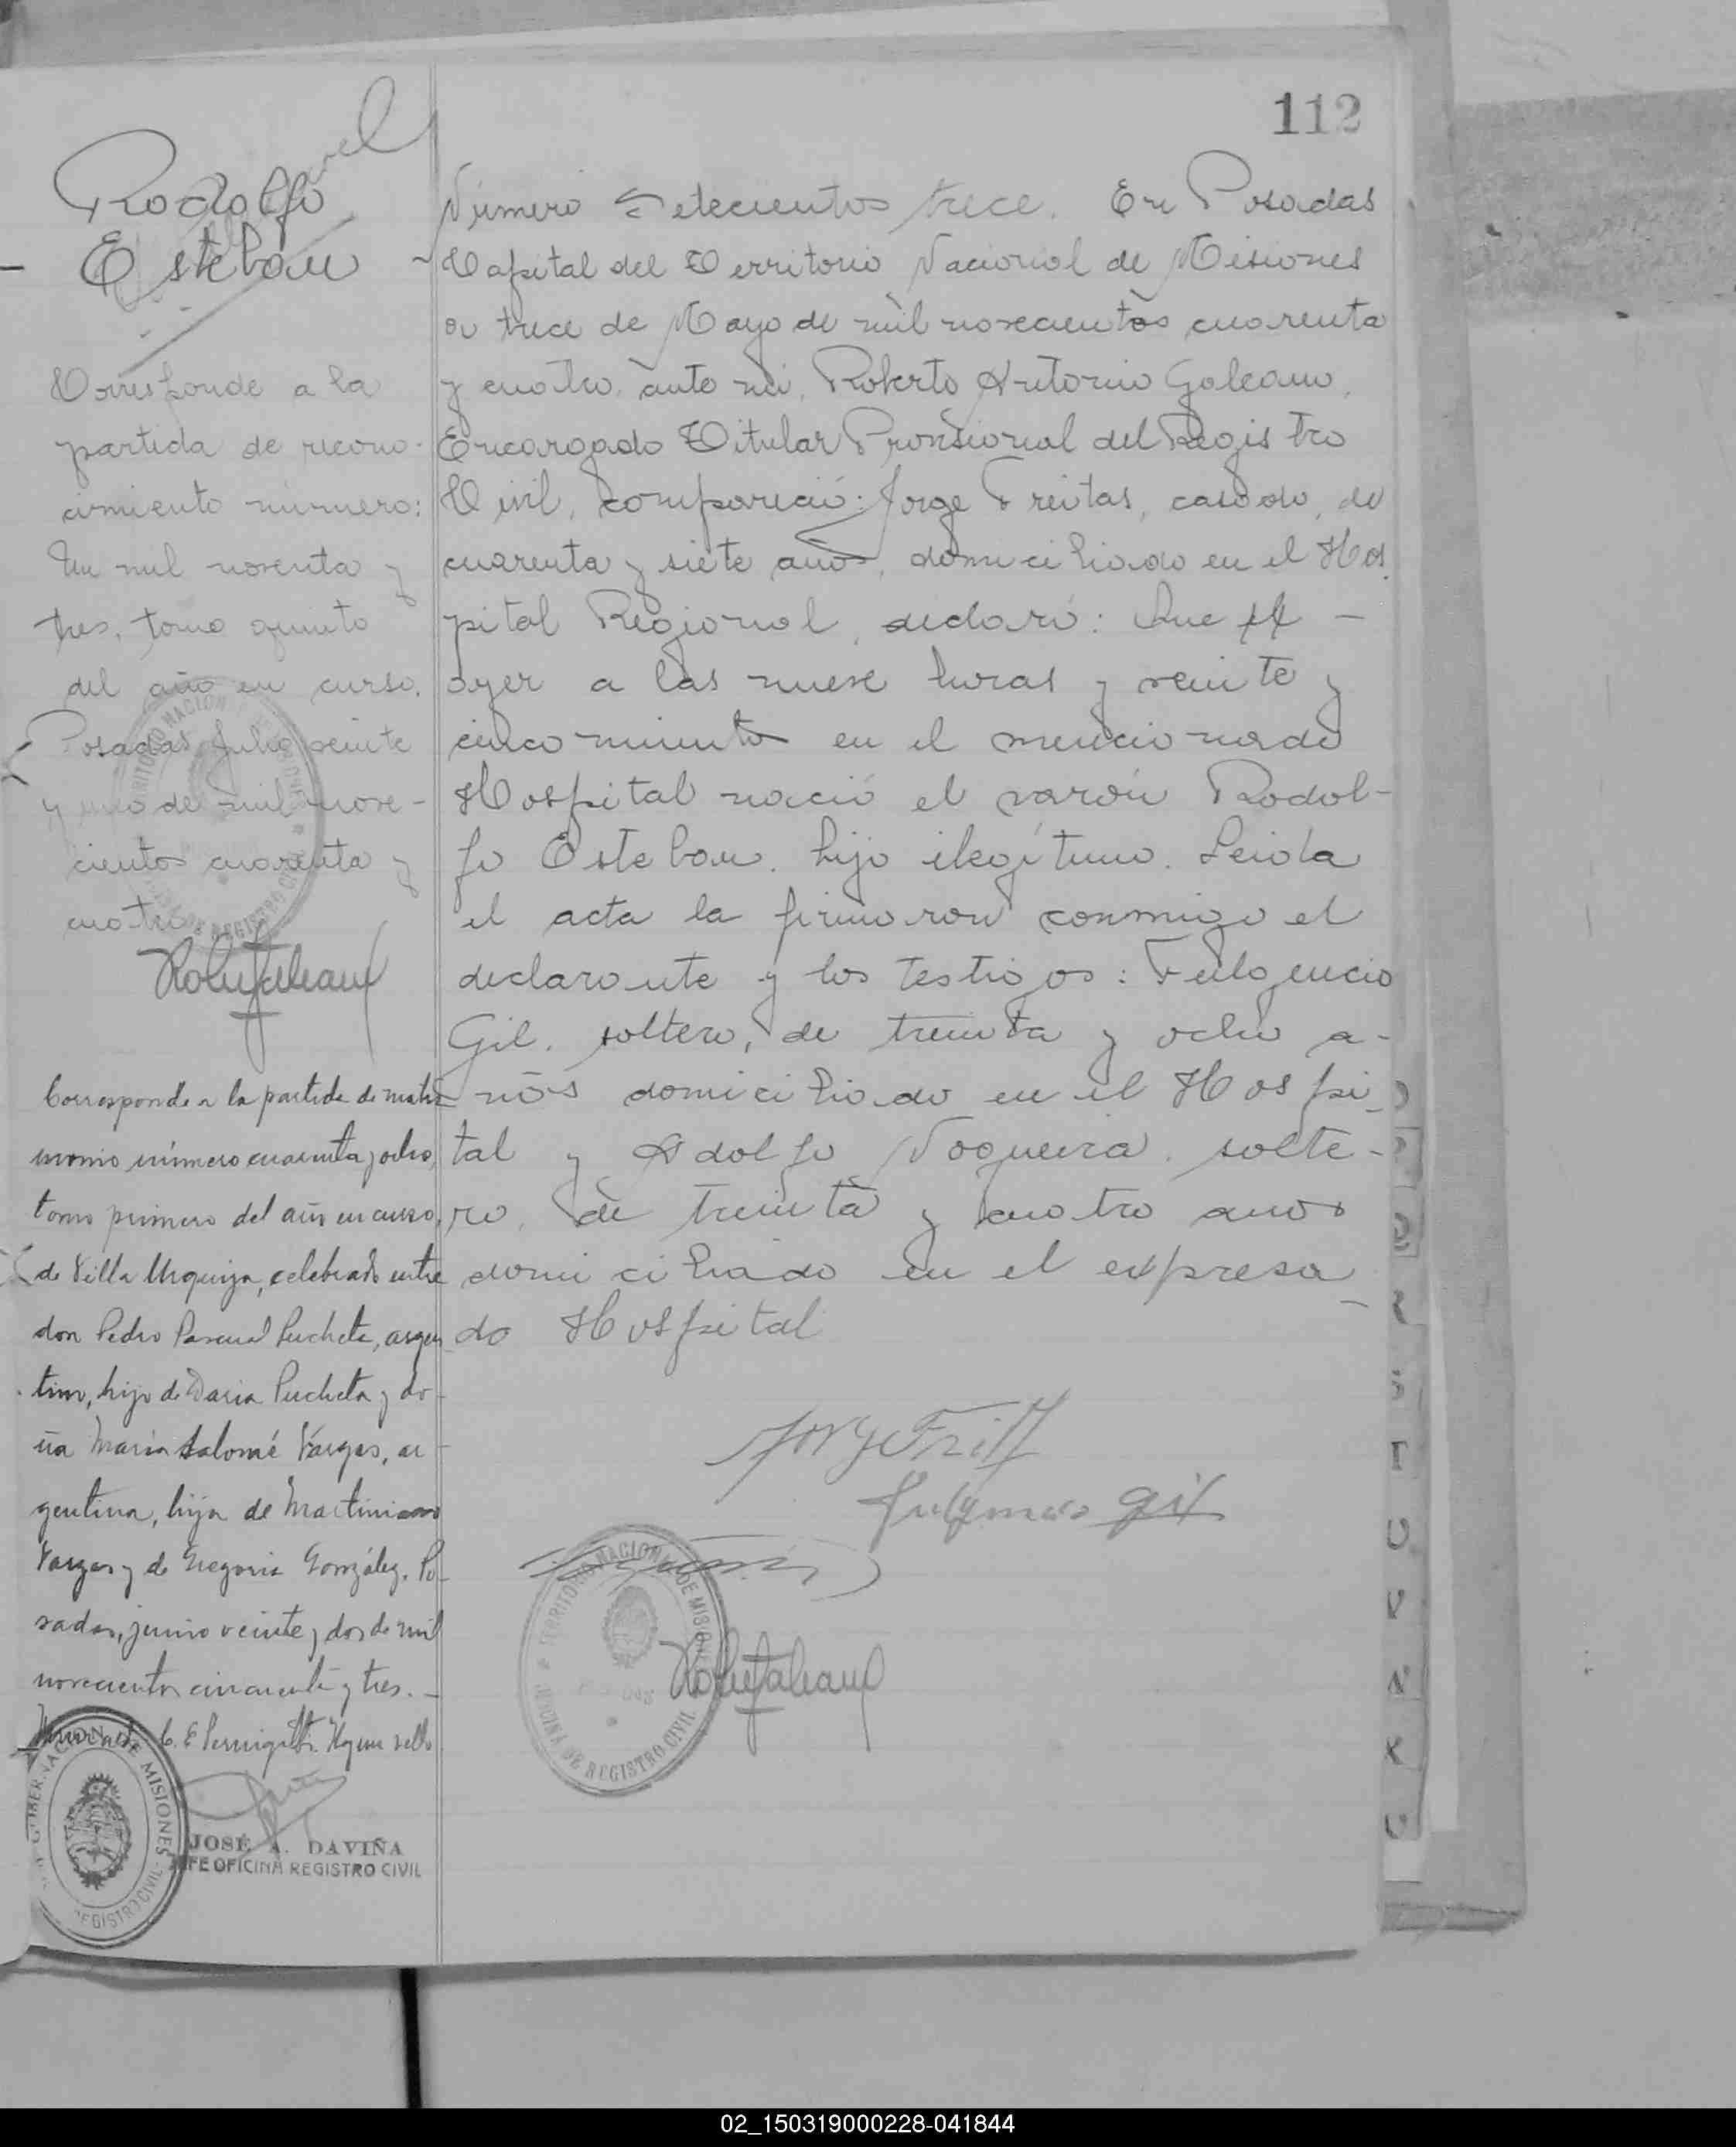 112
Rodolfo
Esteban
Corresponde a la
partida de recono-
cimiento número:
Un mil noventa y
tres, tomo quinto
del año en curso.
Posadas, Julio veinte
y uno de mil nove-
cientos cuarenta y
cuatro
Corresponde a la partida de matri
monio número cuarenta y ocho,
tomo primero del año en curso,
de Villa Urquiza, celebrado entre
don Pedro Pascual Pucheta, argen
tino, hijo de Daria Pucheta y do-
ña María Salomé Vargas, ar-
gentina, hija de Martiniano
Vargas y de Gregoria González. Po-
sadas, junio veinte y dos de mil
novecientos cincuenta y tres. -
Hay un sello
GOBERNACION DE MISIONES
REGISTRO CIVIL
JOSÉ A. DAVIÑA
JEFE OFICINA REGISTRO CIVIL
Número Setecientos trece. En Posadas
Capital del Territorio Nacional de Misiones
a trece de Mayo de mil novecientos cuarenta
y cuatro, ante mí, Roberto Antonio Galeano,
Encargado Titular Provisional del Registro
Civil, compareció: Jorge Freitas, casado, de
cuarenta y siete años, domiciliado en el Hos
pital Regional, declaró: Que -
ayer a las nueve horas y veinte y
cinco minutos en el mencionado
Hospital nació el varón Rodol-
fo Esteban. hijo ilegítimo. Leida
el acta la firmaron conmigo el
declarante y los testigos: Fulgencio
Gil, soltero, de treinta y ocho a-
ños domiciliado en el Hospi
tal y Adolfo Nogueira, solte-
ro, de treinta y cuatro años
domiciliado en el expresa
do Hospital
Jorge Freit
Fulgencio Gil
TERRITORIO NACIONAL DE MISIONES
OFICINA DE REGISTRO CIVIL
02_150319000228-041844